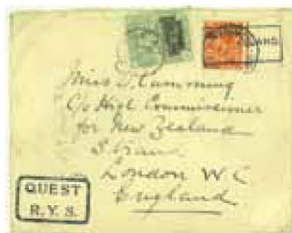 Miss D. Cumming
C/o High Commissioner
for New Zealand
Strand
London W C
England
QUEST
R. Y. S.